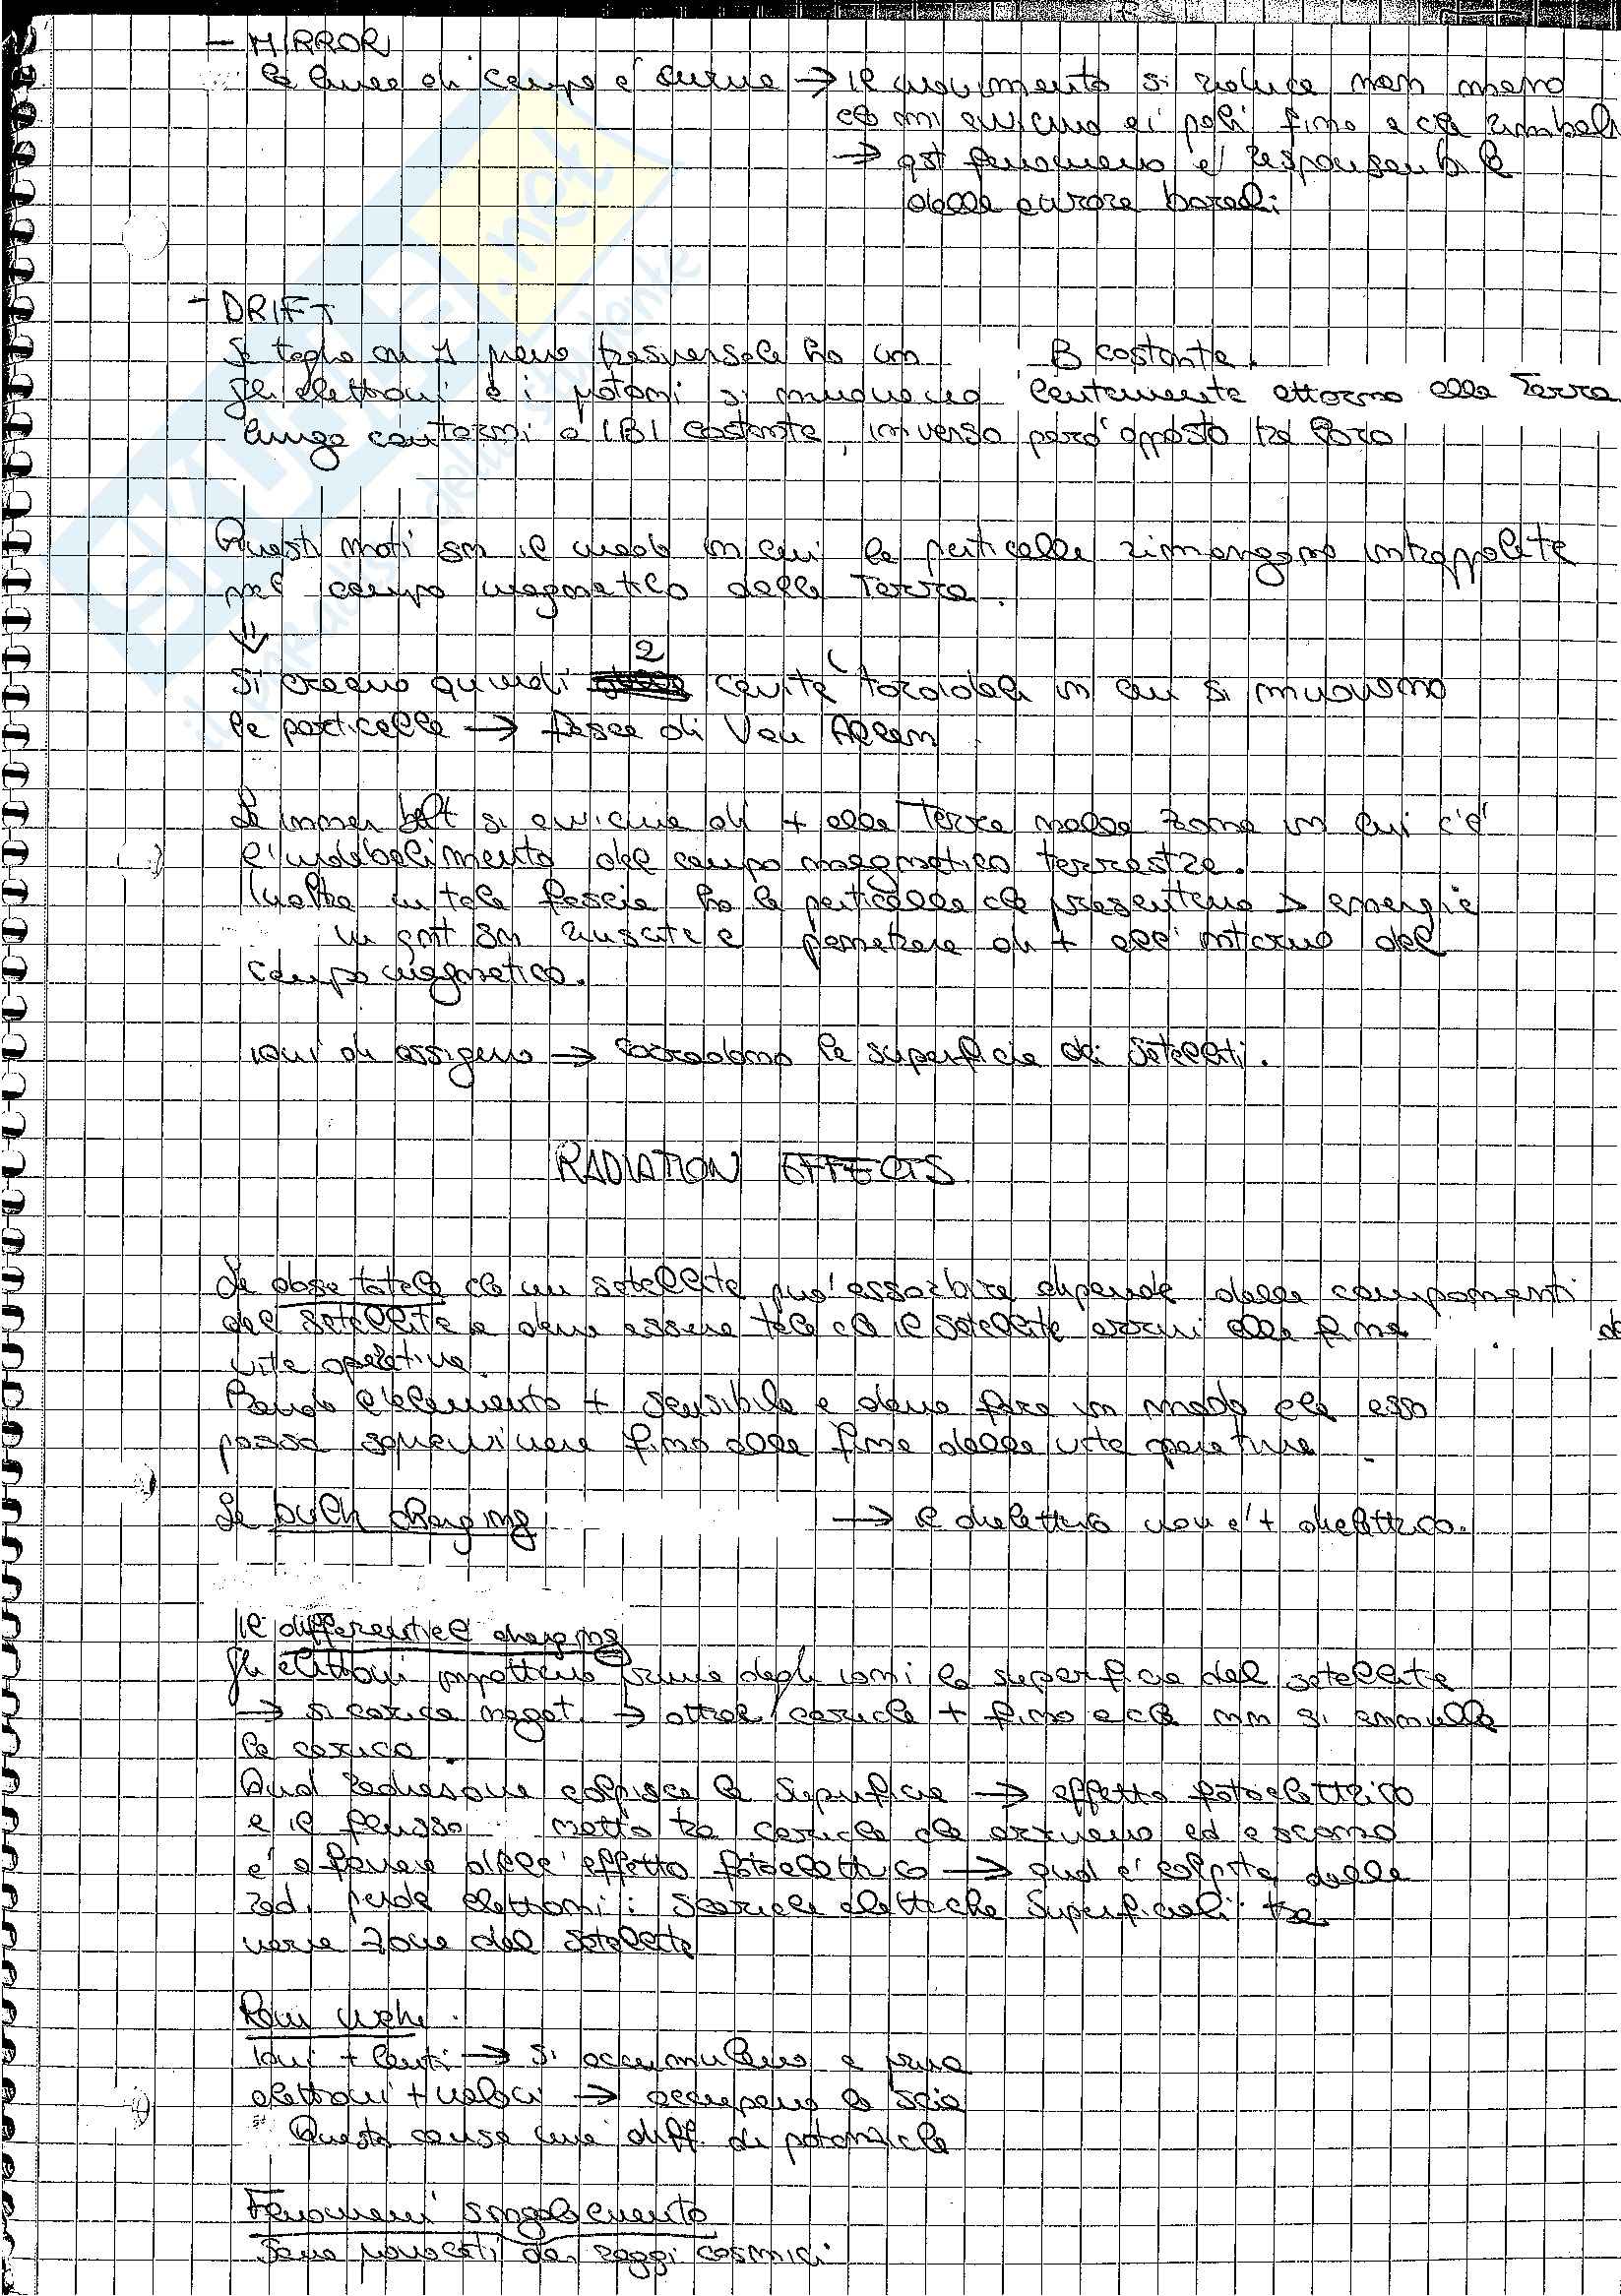 - MIRROR
la linea di campo è curva → il movimento si riduce man mano
che mi avvicino ai poli fino a che rimbalzi
→ qst fenomeno è responsabile
delle aurore boreali
- DRIFT
Se taglio con 1 piano trasversale ho un B costante.
Gli elettroni e i protoni si muovono lentamente attorno alla Terra
lungo contorni a |B| costante, in verso però opposto tra loro
Questi moti sn il modo in cui le particelle rimangono intrappolate
nel campo magnetico della Terra.
⇓
Si creano quindi 2 cavità toroidali in cui si muovono
le particelle → fasce di Van Allen
La inner belt si avvicina di + alla Terra nella zona in cui c'è
l'indebolimento del campo magnetico terrestre.
Inoltre in tale fascia ho le particelle che presentano > energie
in qnt sn riuscite a penetrare di + all'interno del
campo magnetico.
ioni di ossigeno → corrodono la superficie dei satelliti.
RADIATION EFFECTS
La dose totale che un satellite può assorbire dipende dalle componenti
del satellite e deve essere tale che il satellite arrivi alla fine de
vita operativa.
Prendo l'elemento + sensibile e devo fare in modo che esso
possa sopravvivere fino alla fine della vita operativa
Le bulk charging → il dielettrico non è + dielettrico.
Il differential charging
Gli elettroni impattano prima degli ioni la superficie del satellite
→ si carica negat. → attrae cariche + fino a che nn si annulla
la carica.
Qnd radiazione colpisce la superficie → effetto fotoelettrico
e il flusso netto tra cariche che arrivano ed escono
è a favore dell'effetto fotoelettrico → qnd è colpita dalla
rad. perde elettroni: scariche elettriche superficiali tra
varie zone del satellite
Ram wake.
ioni + lenti → si accumulano a prua
elettroni + veloci → occupano la scia
Questo causa una diff. di potenziale
Fenomeni singolo evento
Sono provocati dai raggi cosmici